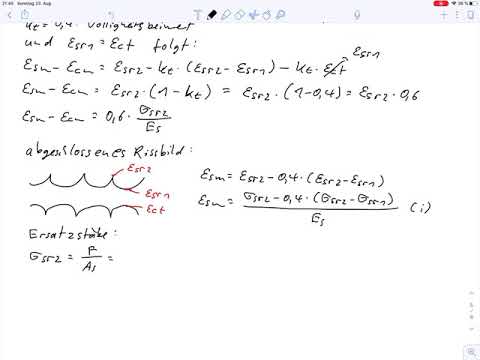 21:40 Sonntag 23. Aug. 36 %
kt = 0,4 . Völligkeitsbeiwert
εsr1
und εsr1 = εct folgt:
εsm - εcm = εsr2 - kt · (εsr2 - εsr1) - kt · εct
εsm - εcm = εsr2 · (1 - kt) = εsr2 · (1 - 0,4) = εsr2 · 0,6
εsm - εcm = 0,6 · σsr2 / Es
abgeschlossenes Rissbild:
εsr2
εsr1
εct
εsm = εsr2 - 0,4 · (εsr2 - εsr1)
εsm = σsr2 - 0,4 · (σsr2 - σsr1) / Es (i)
Ersatzstäbe:
σsr2 = F / As =